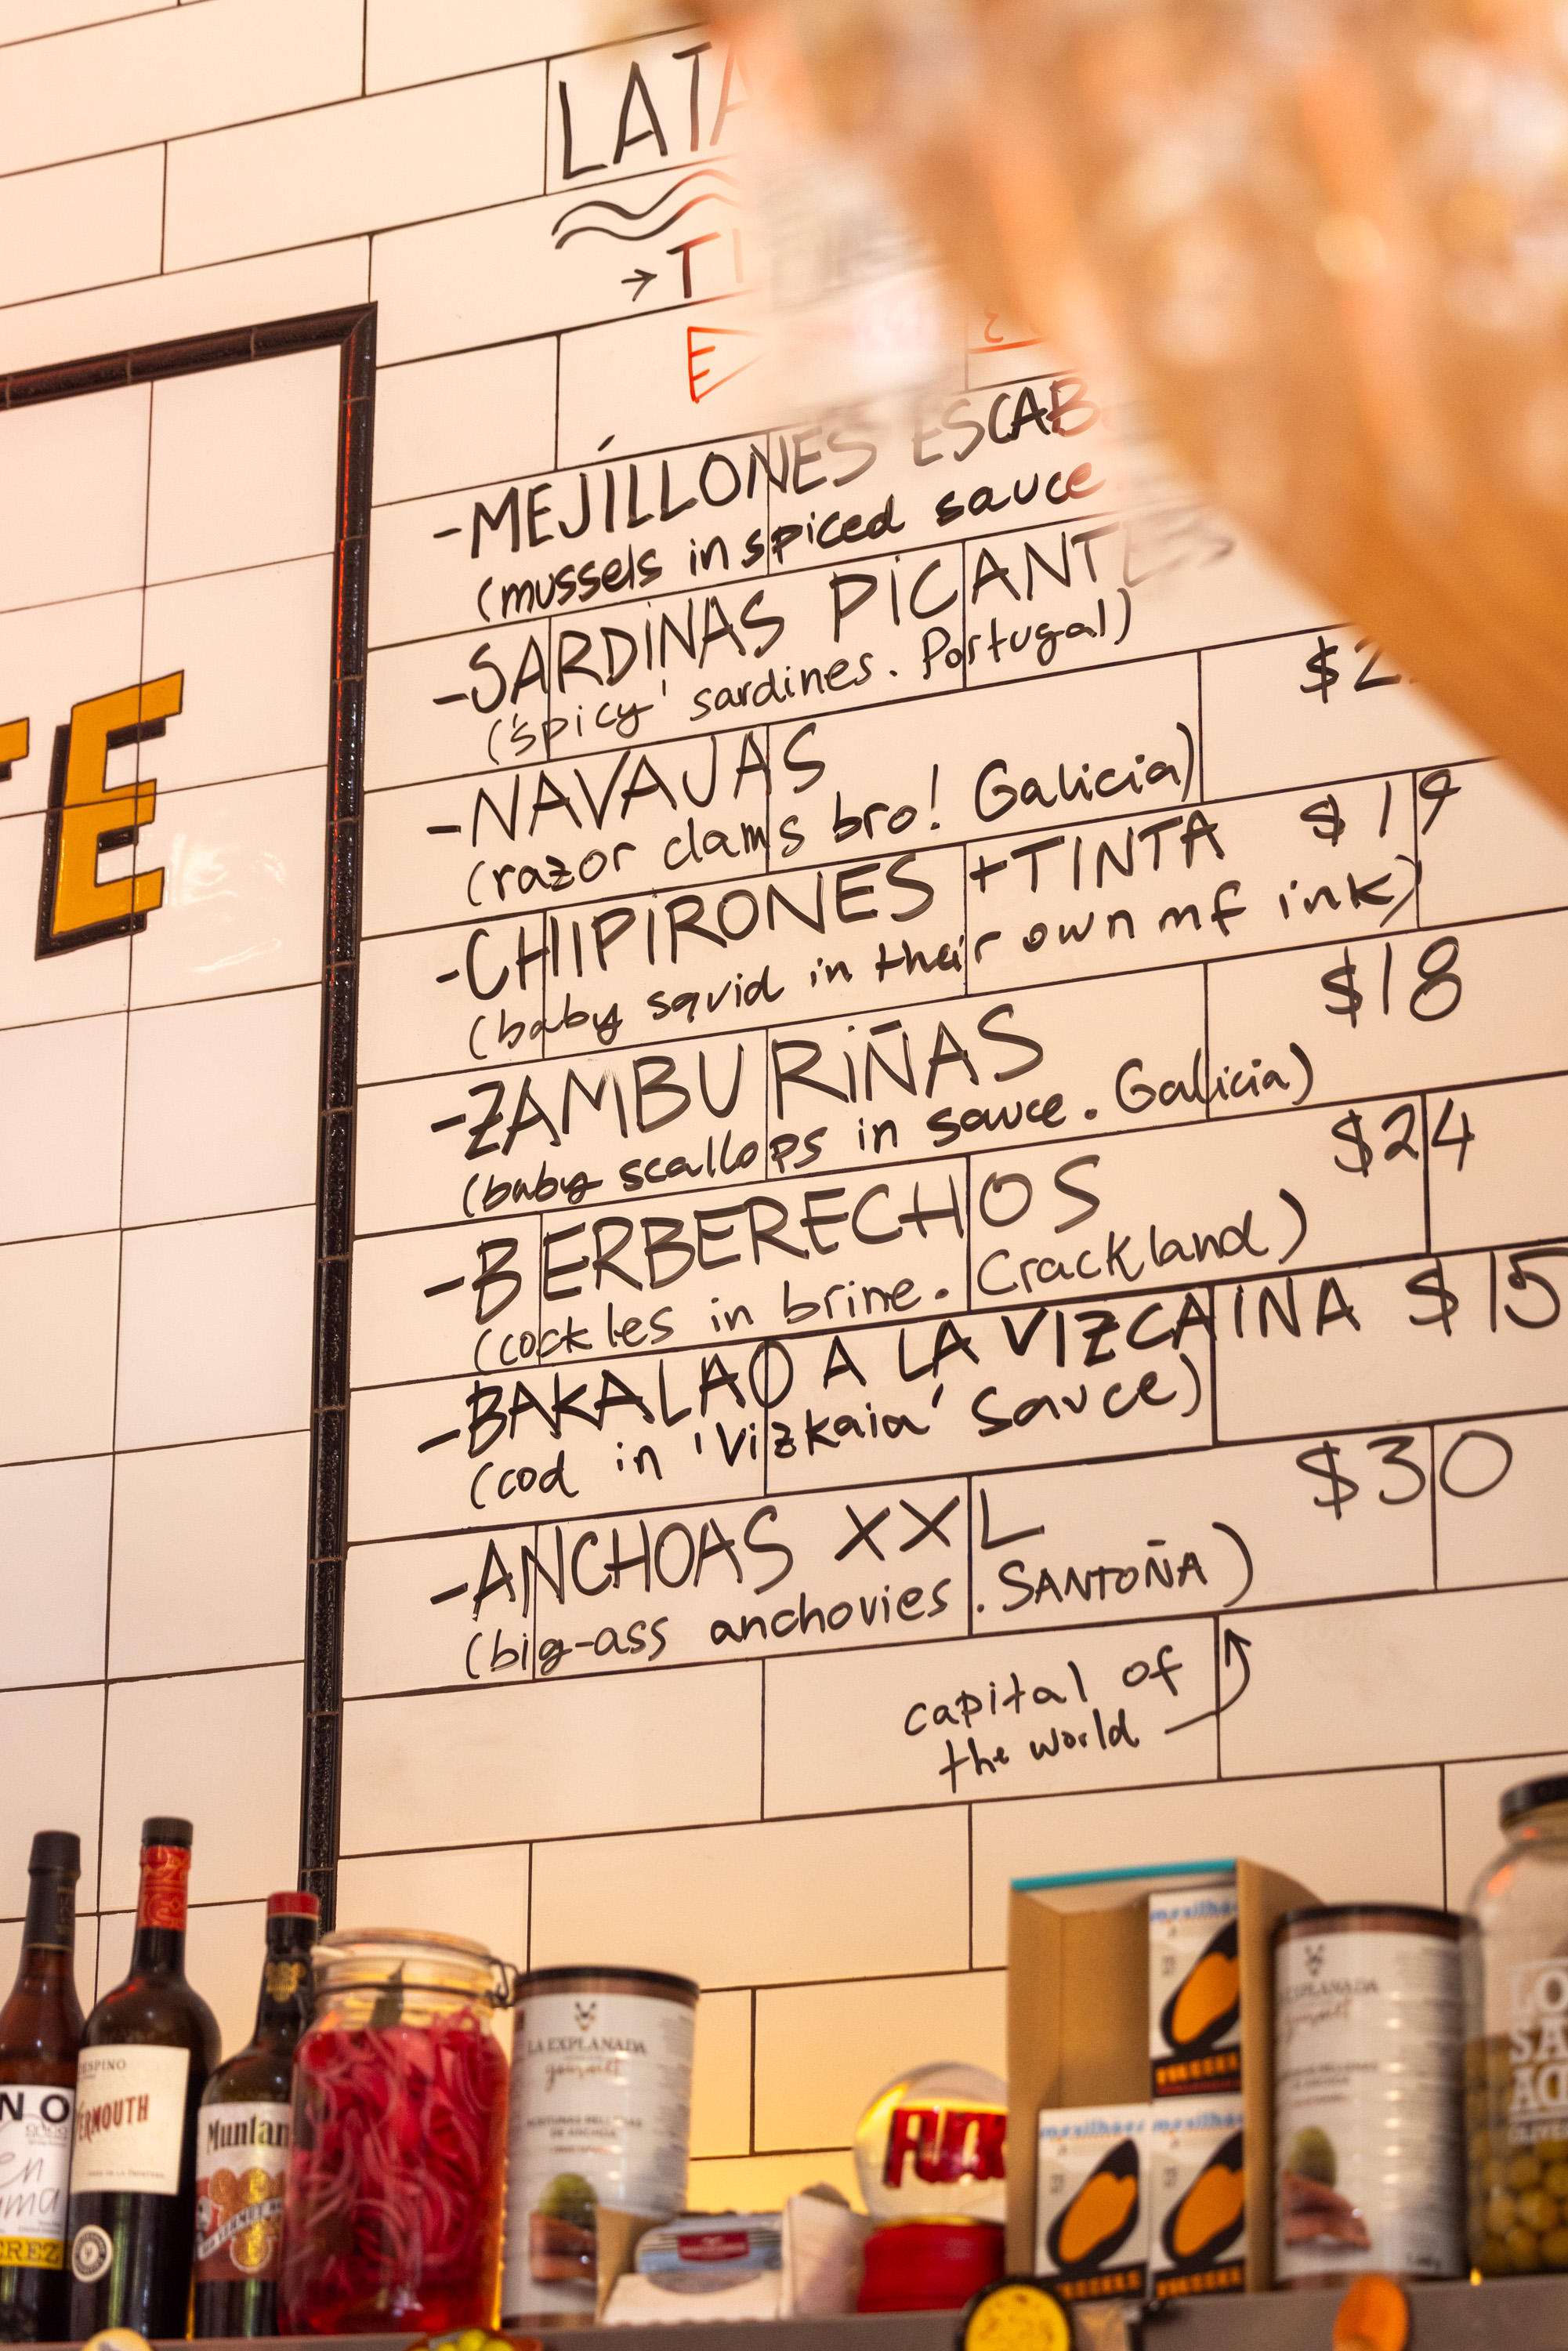 -MEJILLONES
(mussels in spiced sauce.
-SARDINAS PICANTES
('spicy' sardines. Portugal)
-NAVAJAS
(razor clams bro! Galicia)
-CHIPIRONES +TINTA $19
(baby squid in their own mf ink)
-ZAMBURIÑAS $18
(baby scallops in sauce. Galicia)
-BERBERECHOS $24
(cockles in brine. Crackland)
-BAKALAO A LA VIZCAINA $15
(cod in 'Vizkaia' sauce)
-ANCHOAS XXL $30
(big-ass anchovies. SANTOÑA)
capital of
the world
VERMOUTH
LA EXPLANADA
gourmet
LA EXPLANADA
gourmet